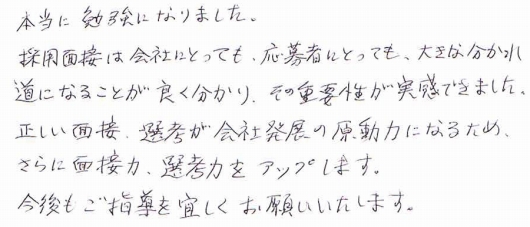 本当に勉強になりました。
採用面接は会社にとっても、応募者にとっても、大きな分かれ
道になることが良く分かり、その重要性が実感できました。
正しい面接、選考が会社発展の原動力になるため、
さらに面接力、選考力をアップします。
今後もご指導を宜しくお願いいたします。